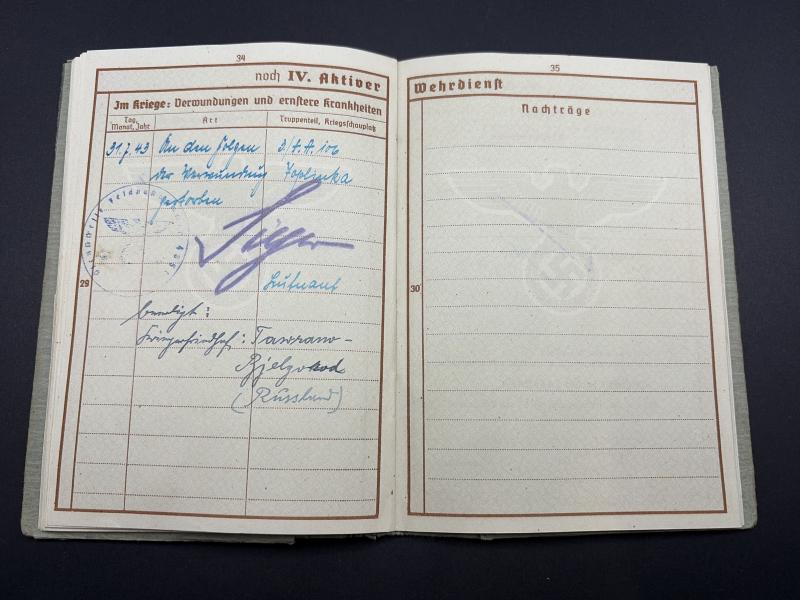 34
noch IV. Aktiver
Im Kriege: Verwundungen und ernstere Krankheiten
Tag, Monat, Jahr
Art
Truppenteil, Kriegsschauplatz
31.7.43 An den Folgen 3/A.A. 106
der Verwundung Toplinka
gestorben
Leutnant
29
beerdigt:
Kriegerfriedhof: Tawrano-
Bjelgorod
(Russland)
35
Wehrdienst
Nachträge
30